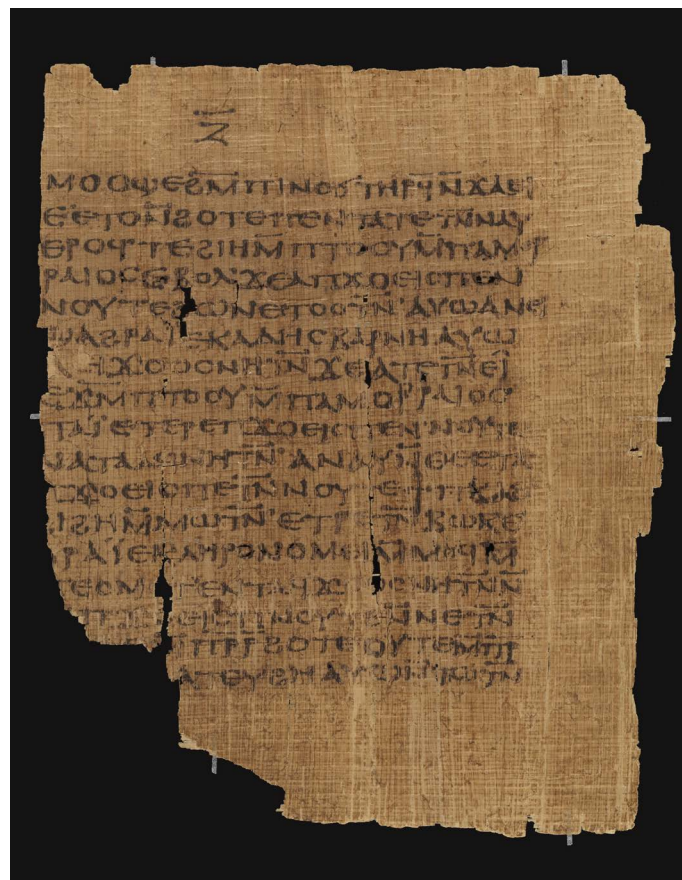 ⲍ̄
ⲙⲟⲟϣⲉϩⲙ̄ⲡⲓⲛⲟϭⲧⲏⲣϥⲛ̄ϫⲁⲉⲓ
ⲉⲉⲧⲟⲛ̄ϩⲟⲧⲉⲡⲉⲛⲧⲁⲧⲉⲧⲛ̄ⲛⲁⲩ
ⲉⲣⲟϥⲧⲉϩⲓⲏⲙ̄ⲡⲧⲟⲟⲩⲙ̄ⲡⲁⲙⲟⲣ
ⲣⲁⲓⲟⲥⲉⲃⲟⲗϫⲉⲁⲡϫⲟⲉⲓⲥⲡⲉⲛ
ⲛⲟⲩⲧⲉϩⲱⲛⲉⲧⲟⲟⲧⲛ̄ⲁⲩⲱⲁⲛⲉⲓ
ϣⲁϩⲣⲁⲓⲉⲕⲁⲇⲏⲥⲕⲁⲣⲛⲏⲁⲩⲱ
ϫⲟⲟⲥⲛⲏⲧⲛ̄ϫⲉⲁⲧⲉⲧⲛ̄ⲉⲓ
ⲙ̄ⲡⲧⲟⲟⲩⲙ̄ⲡⲁⲙⲟⲣⲣⲁⲓⲟⲥ
ⲡⲁⲓⲉⲧⲉⲣⲉⲡϫⲟⲉⲓⲥⲡⲉⲛⲛⲟⲩⲧⲉ
ⲛⲁⲧⲁⲁϥⲛⲏⲧⲛ̄ⲁⲛⲁⲩⲛ̄ⲑⲉⲉⲧⲉ
ⲡϫⲟⲉⲓⲥⲡⲉⲧⲛ̄ⲛⲟⲩⲧⲉϯⲙ̄ⲡⲕⲁ
ϩϩⲓϩⲏⲙ̄ⲙⲱⲧⲛ̄ⲉⲧⲣⲉⲧⲛ̄ⲃⲱⲕⲉ
ϩⲣⲁⲓⲉⲕⲗⲏⲣⲟⲛⲟⲙⲉⲓⲙ̄ⲙⲟϥⲛ̄
ⲡⲉⲛⲧⲁϥϫⲟⲟⲥⲛⲏⲧⲛ̄ⲛ̄
ϫⲟⲉⲓⲥⲡⲛⲟⲩⲧⲉⲛ̄ⲛⲉⲧⲛ̄
ⲙ̄ⲡⲣ̄ⲣ̄ϩⲟⲧⲉⲟⲩⲧⲉⲙ̄ⲡⲣ̄
ⲁⲩⲱ